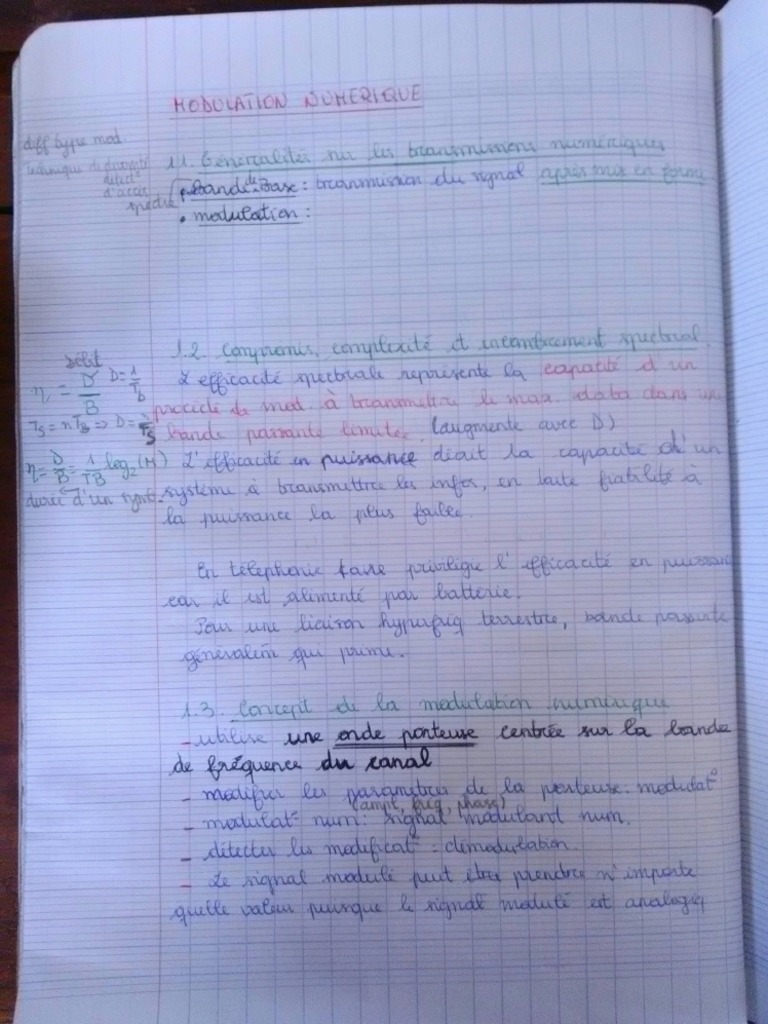 MODULATION NUMERIQUE
diff type mod.
Technique de
d'accès
1.1. Généralités sur les transmissions numériques
bande de Base : transmission du signal après mis en forme
• modulation :
1.2. Compromis, complexité et encombrement spectral
Débit
η = D/B D = 1/Tb
L'efficacité spectrale représente la capacité d'un
procédé de mod. à transmettre le max data dans un
Ts = nTb => D = n/Ts
bande passante limitée. (augmente avec D)
η = D/B = 1/TB log2(M)
L'efficacité en puissance décrit la capacité d'un
durée d'un symb
système à transmettre les infos, en toute fiabilité à
la puissance la plus faible.
En téléphonie privilégie l'efficacité en puissan
car il est alimenté par batterie.
Pour une liaison hyperfréq terrestre, bande passante
généralem qui prime.
1.3. Concept de la modulation numérique
- utilise une onde porteuse centrée sur la bande
de fréquence du canal
- modifier les paramètres de la porteuse : modulat°
(ampl, fréq, phase)
- modulat° num : signal modulant num.
- détecter les modificat° : démodulation.
- Le signal modulé peut être prendre n'importe
quelle valeur puisque le signal modulé est analogiq